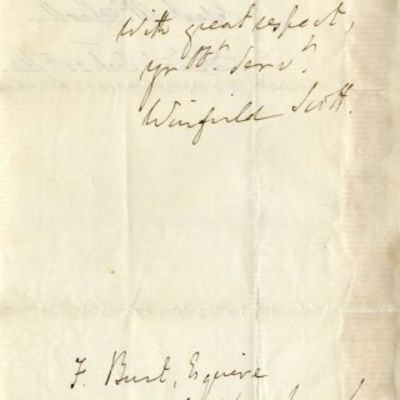 With great respect,
Yr Ob. Serv.t
Winfield Scott.
F. Burt, Esquire